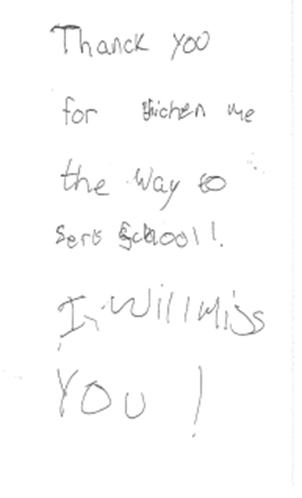 Thanck you
for thichen me
the way to
Sers School!!
I will Miss
YOU !